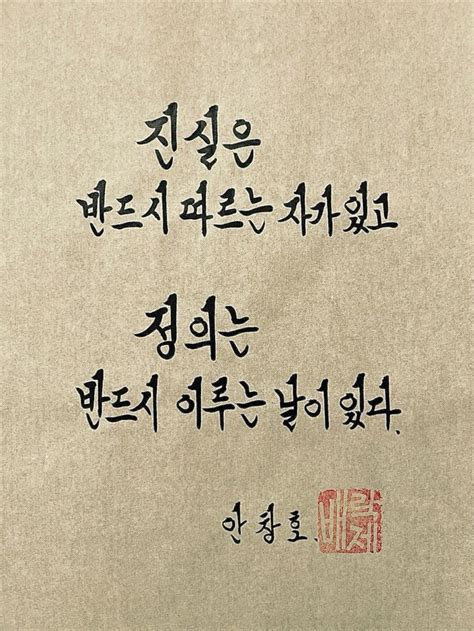 진실은
반드시 따르는 자가 있고
정의는
반드시 이루는 날이 있다.
안창호.